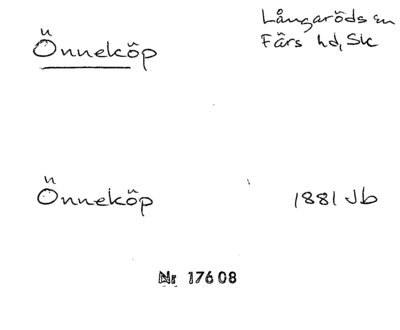 Långaröds sn
Önneköp
Färs hd, Sk
Önneköp
1881 Jb
Nr 17608